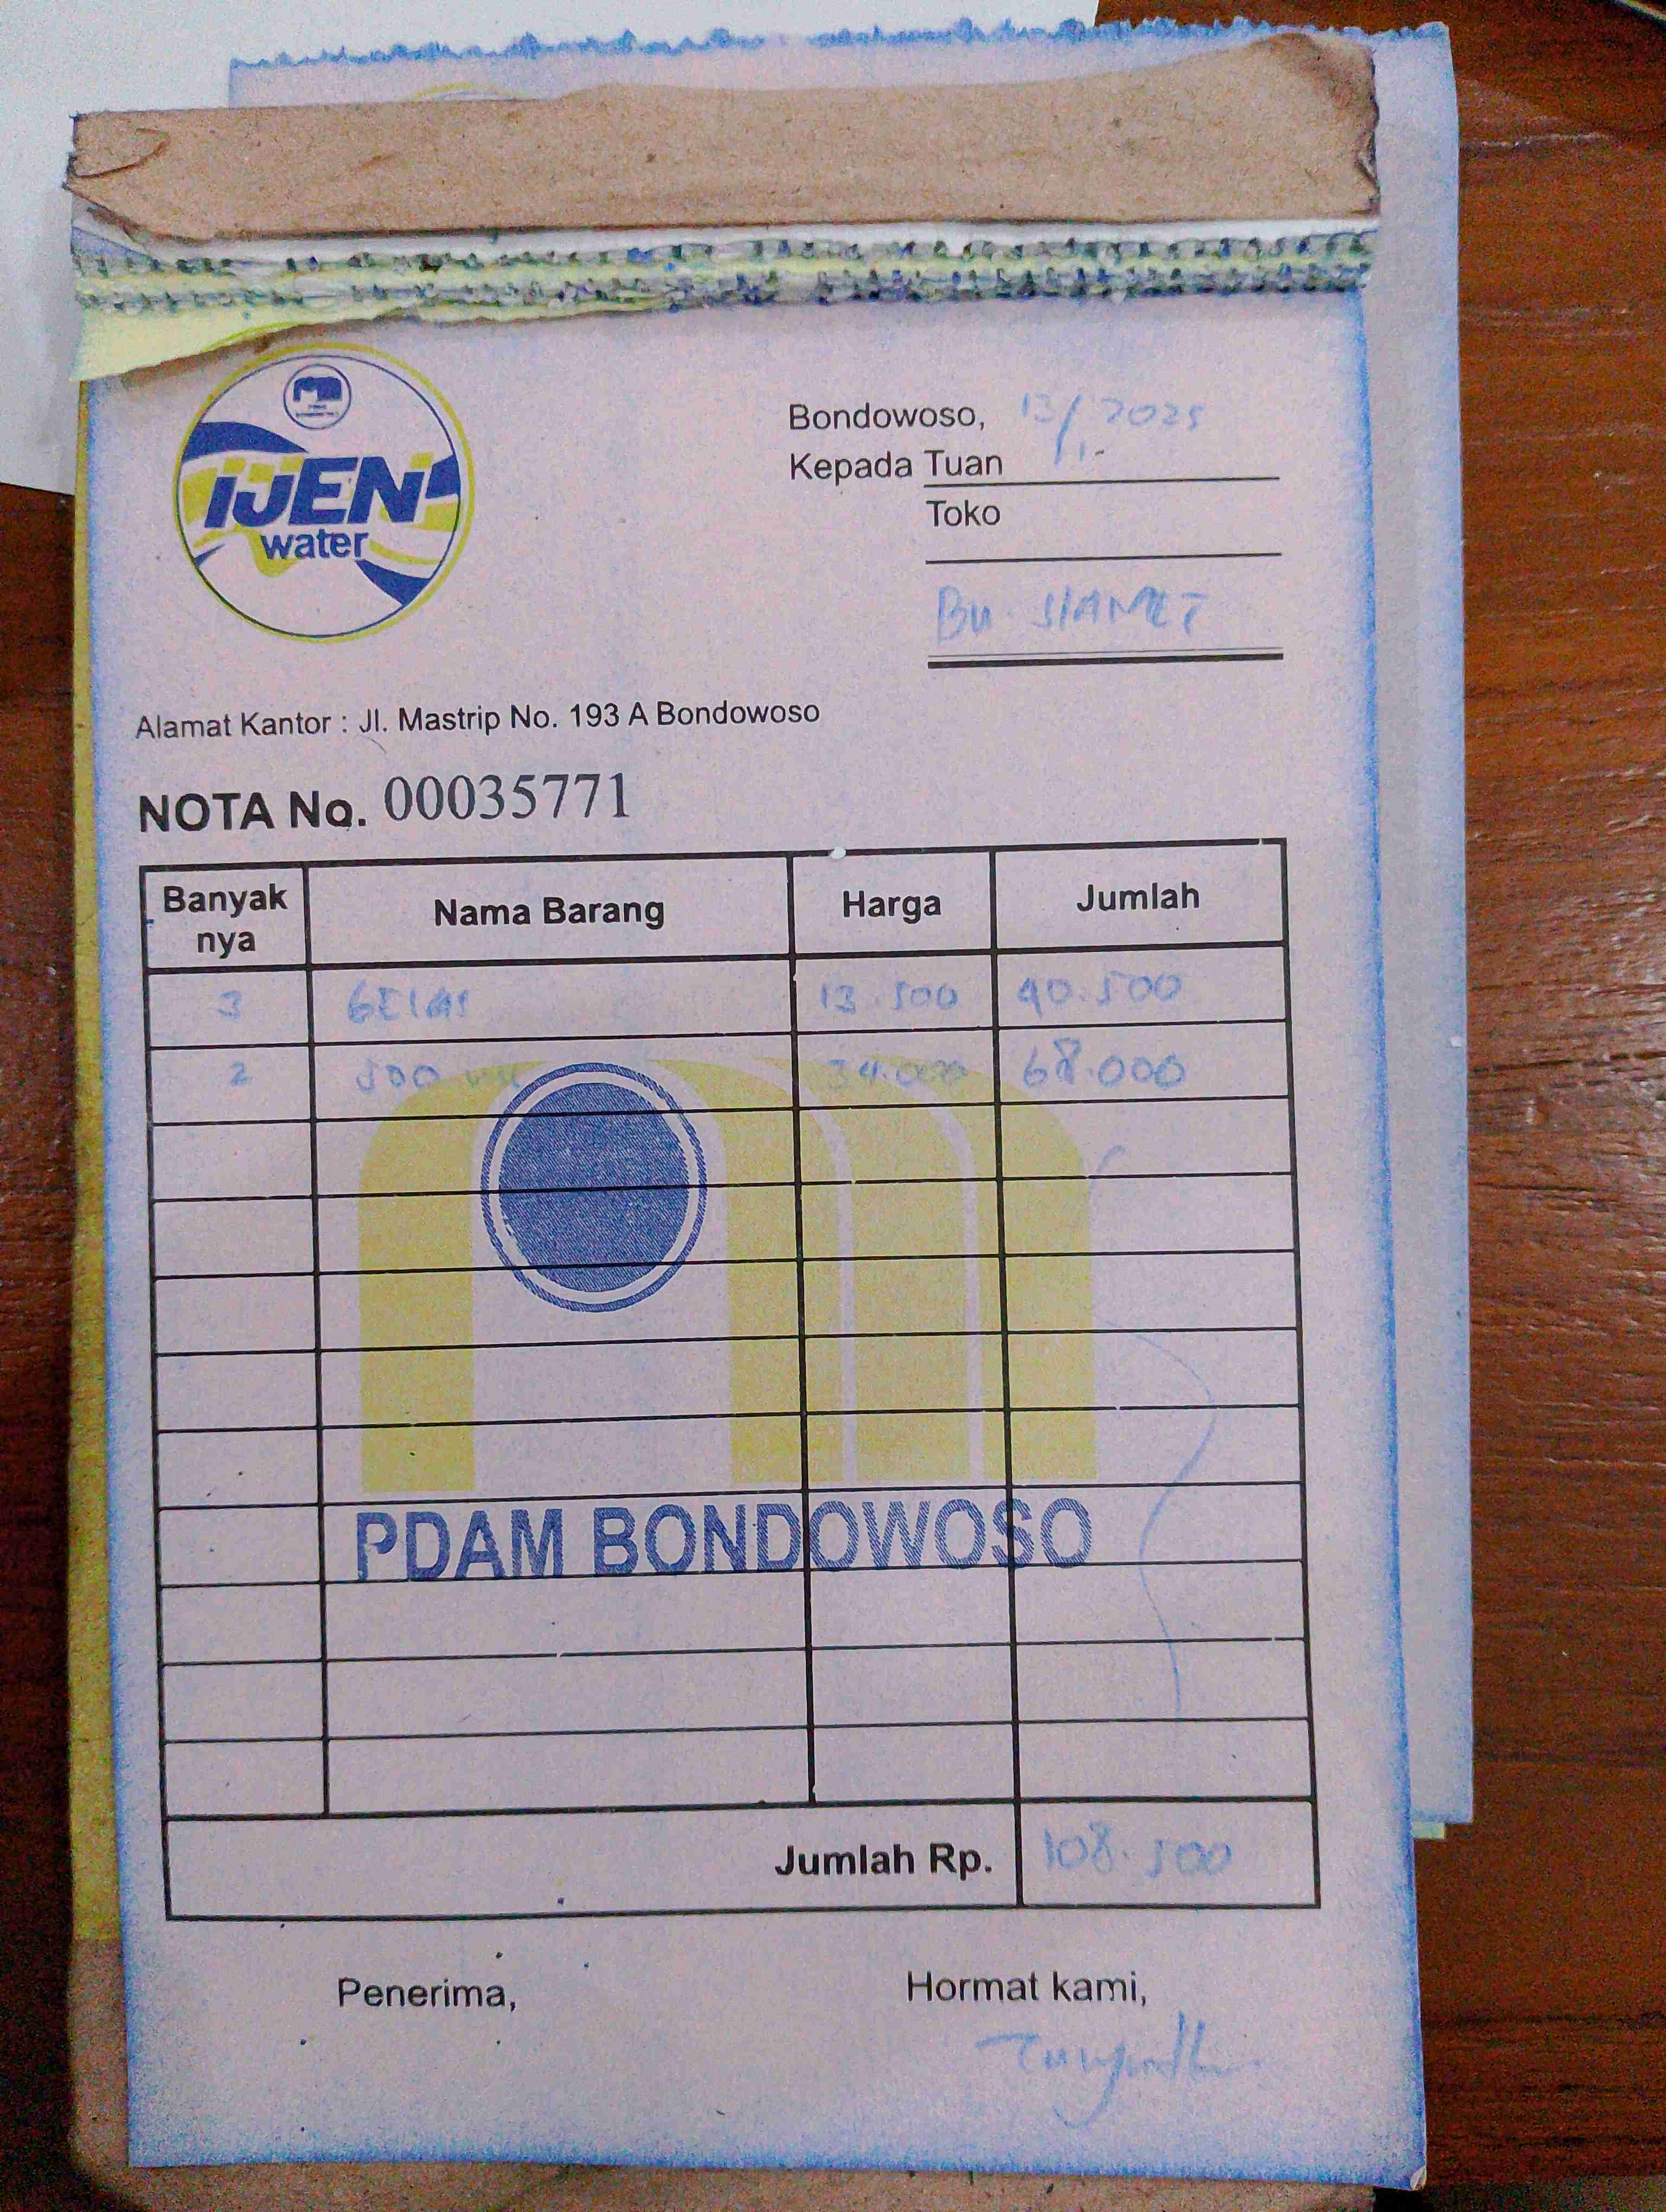 IJEN
water
Bondowoso, 13/1-2025
Kepada Tuan
Toko
Bu. SlAMET
Alamat Kantor : Jl. Mastrip No. 193 A Bondowoso
NOTA No. 00035771
Banyak nya Nama Barang Harga Jumlah
3 GElAS 13.500 40.500
2 500 ml 34.000 68.000
PDAM BONDOWOSO
Jumlah Rp. 108.500
Penerima, Hormat kami,